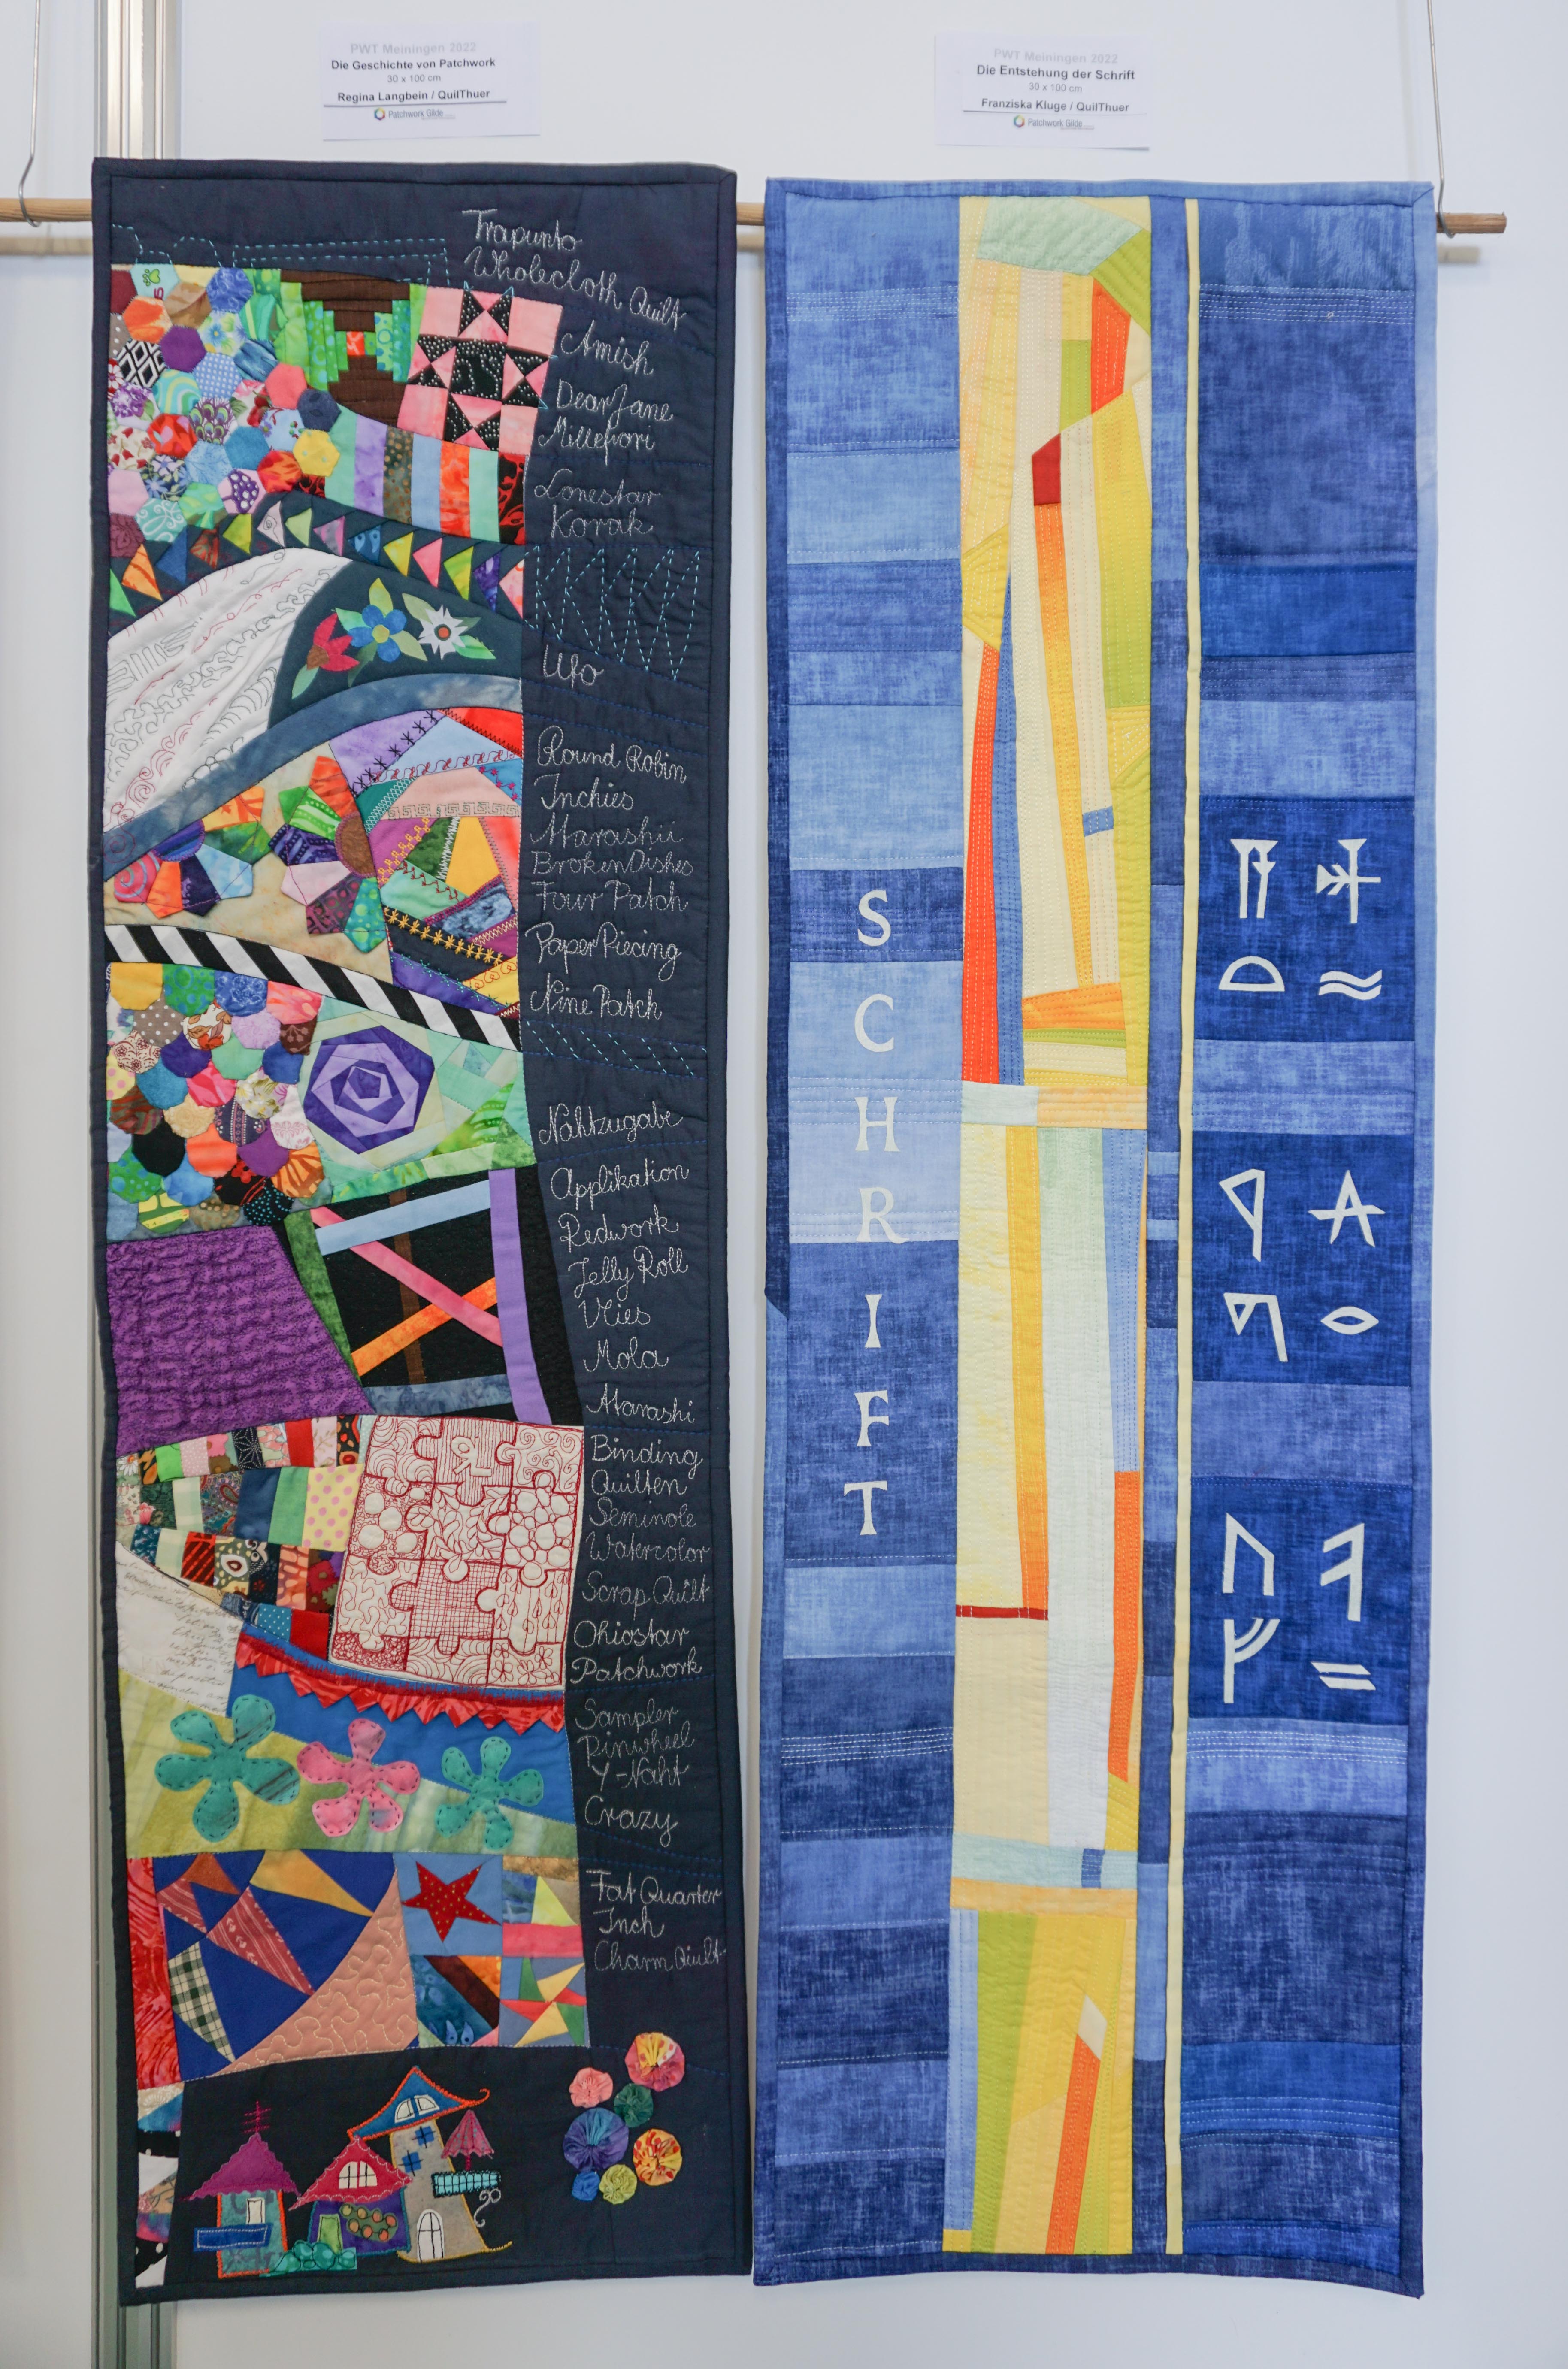 PWT Meiningen 2022
Die Geschichte von Patchwork
30 x 100 cm
Regina Langbein / QuilThuer
Patchwork Gilde
PWT Meiningen 2022
Die Entstehung der Schrift
30 x 100 cm
Franziska Kluge / QuilThuer
Patchwork Gilde
Trapunto
Wholecloth Quilt
Amish
Dear Jane
Millefiori
Lonestar
Korak
Ufo
Round Robin
Inchies
Broken Dishes
Four Patch
Paper Piecing
Nine Patch
Nahtzugabe
Applikation
Redwork
Jelly Roll
Vlies
Mola
Binding
Quilten
Seminole
Watercolor
Scrap Quilt
Ohiostar
Patchwork
Sampler
Pinwheel
Y-Naht
Crazy
Fat Quarter
Inch
Charm Quilt
S
C
H
R
I
F
T